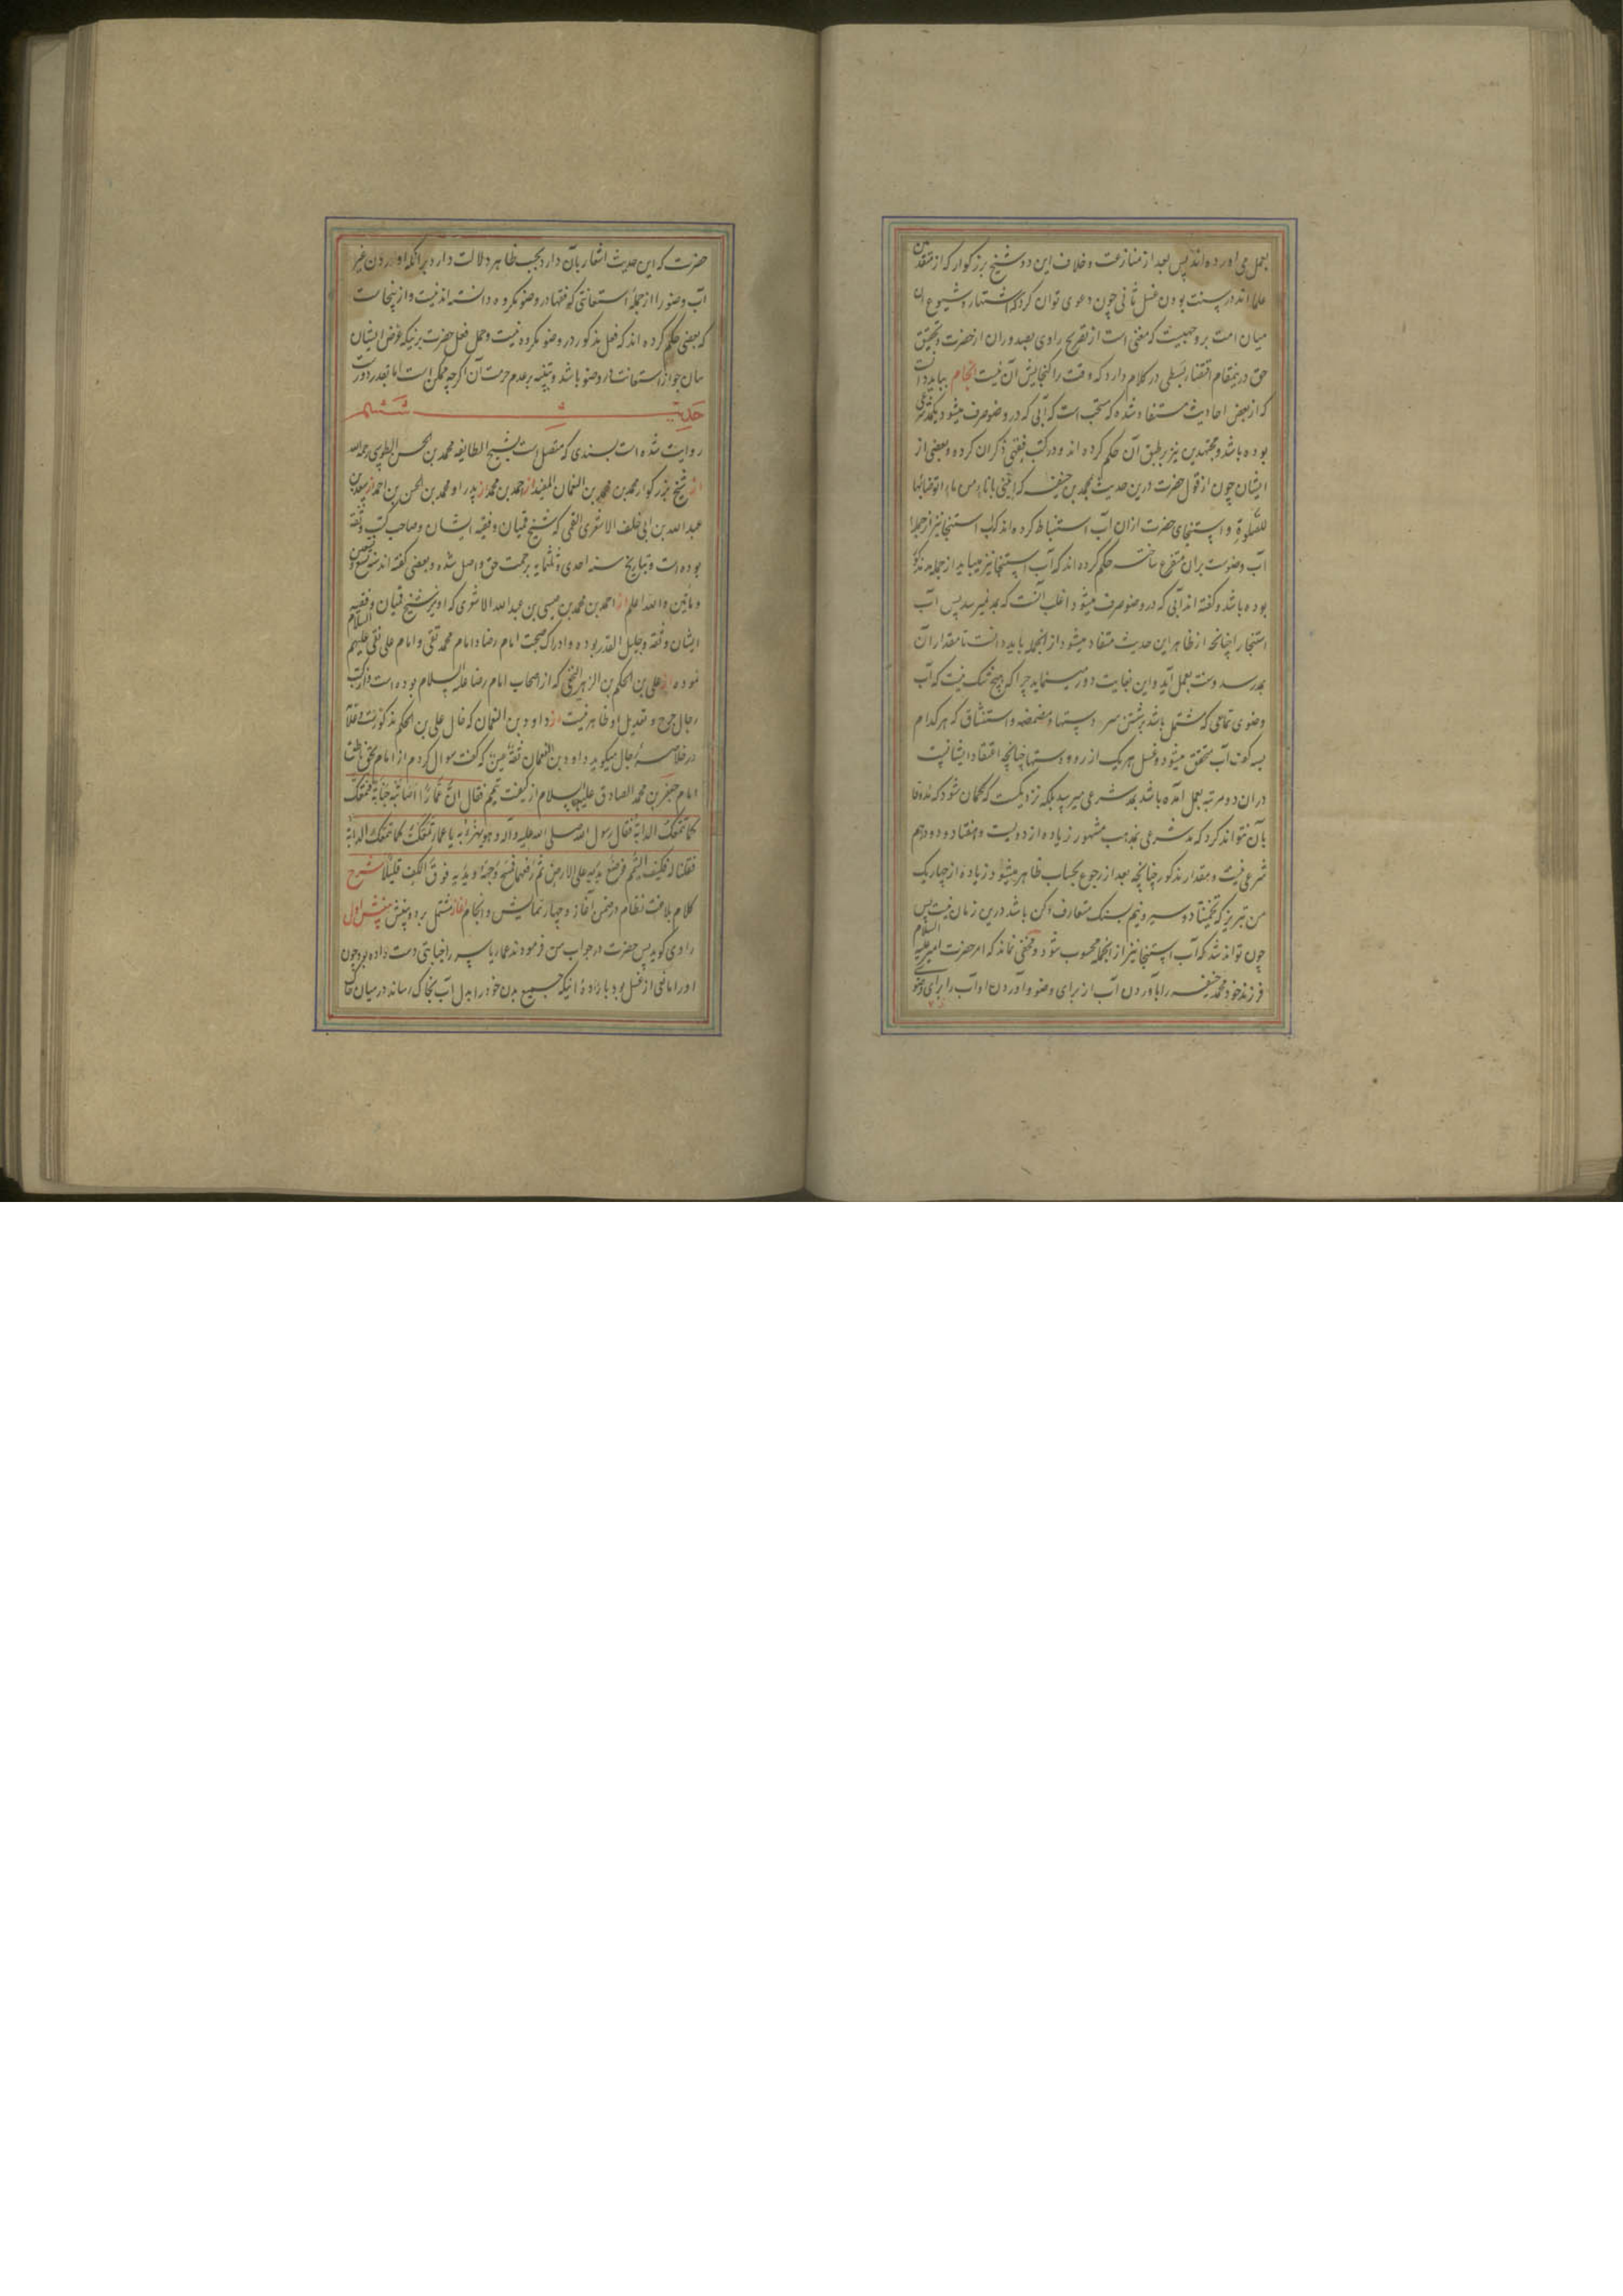 بعمل می آورده اند پس بعد از منازعت و خلاف این دو شیخ بزرگوار که از متقدمین
علما اند در سنت بودن غسل ثانی چون دعوی توان کرد که اشتهار و شیوع آن
میان امت بر وجهیست که مغنی است از تصریح راوی بصدور آن از حضرت و تحقیق
حق درینمقام اقتضاء بسطی در کلام دارد که وقت را گنجایش آن نیست انجام بباید دانست
که از بعض احادیث مستفاد شده که مستحب است که آبی که در وضو صرف میشود یکمد شرعی
بوده باشد و مجتهدین نیز بر طبق آن حکم کرده اند و در کتب فقهی ذکر آن کرده و بعضی از
ایشان چون از قول حضرت درین حدیث بمحمد بن حنیفه که ایتنی باناء من ماء اتوضأ بها
للصلوة و استنجای حضرت ازان آب استنباط کرده اند که آب استنجا نیز از جمله
آب وضوست بران متفرع ساخته حکم کرده اند که آب استنجا نیز میباید از جمله مد مذکور
بوده باشد و گفته اند آبی که در وضو صرف میشود اغلب آنست که بمد نمیرسد پس آب
استنجا را چنانچه از ظاهر این حدیث مستفاد میشود از انجمله باید دانست تا مقدار آن
بمد رسد و سنت بعمل آید و این بغایت دور مینماید چرا که هیچ شک نیست که آب
وضوی تمامی که مشتمل باشد بر شستن سر دستها و مضمضه و استنشاق که هر کدام
بسه کف آب متحقق میشود و غسل هر یک از رو و دستها چنانچه اعتقاد ایشانست
دران دو مرتبه بعمل آمده باشد بمد شرعی میرسد بلکه نزدیکست که گمان شود که مد وفا
بآن نتواند کرد که مد شرعی بمذهب مشهور زیاده از دویست و هفتاد و دو درهم
شرعی نیست و مقدار مذکور چنانچه بعد از رجوع بحساب ظاهر میشود زیاده از چهار یک
من تبریز که تخمینا دو سیر و نیم بسنگ متعارف دکن باشد درین زمان نیست پس
چون تواند شد که آب استنجا نیز از انجمله محسوب شود و مخفی نماند که امر حضرت امیر علیه السلام
فرزند خود محمد حنفیه را بآوردن آب از برای وضو و آوردن او آب را برای وضوی
حضرت که این حدیث اشعار بآن دارد بحسب ظاهر دلالت دارد برانکه آوردن غیر
آب وضو را از جمله استعانتی که فقها در وضو مکروه دانسته اند نیست و ازینجاست
که بعضی حکم کرده اند که فعل مذکور در وضو مکروه نیست و حمل فعل حضرت برنیکه غرض ایشان
بیان جواز استعانت در وضو باشد و تنبیه بر عدم حرمت آن اگرچه ممکن است اما بعد دارد
حدیث ششم
روایت شده است بسندی که متصل است بشیخ الطایفه محمد بن الحسن الطوسی رحمه الله
از شیخ بزرگوار محمد بن محمد بن النعمان المفید از احمد بن محمد از پدر او محمد بن الحسن بن احمد از سعد بن
عبد الله بن ابی خلف الاشعری القمی که شیخ قمیان و فقیه ایشان و صاحب کتب و ثقه
بوده است و بتاریخ سنه احدی و ثلثمایه برحمت حق واصل شده و بعضی گفته اند سنه تسع و تسعین
و مأتین والله اعلم از احمد بن محمد بن عیسی بن عبد الله الاشعری که او نیز شیخ قمیان و فقیه
ایشان و ثقه و جلیل القدر بوده و ادراک صحبت امام رضا و امام محمد تقی و امام علی نقی علیهم السلام
نموده از علی بن الحکم بن الزبیر النخعی که از اصحاب امام رضا علیه السلام بوده است و در کتب
رجال جرح و تعدیل او ظاهر نیست از داود بن النعمان که خال علی بن الحکم مذکورست و علامه
در خلاصه رجال میگوید داود بن النعمان ثقة عین که گفت سوال کردم از امام بحق ناطق
امام جعفر بن محمد الصادق علیه السلام از کیفیت تیمم فقال انّ عمّاراً اصابته جنابة فتمعّک
کما تتمعّک الدابة فقال رسول الله صلی الله علیه وآله و هو یهزء به یا عمار تمعّکت کما تتمعّک الدابة
فقلنا له فکیف التیمم فوضع یدیه علی الارض ثم رفعهما فمسح وجهه و یدیه فوق الکف قلیلا شرح
کلام بلاغت نظام در ضمن آغاز و چهار نمایش و انجام آغاز مشتمل بر دو بینش بینش اول
راوی گوید پس حضرت در جواب من فرمودند عمار یاسر را جنابتی دست داده بود و چون
او را مانعی از غسل بود باراده انیکه جمیع بدن خود را بدل آب بخاک رساند در میان خاک